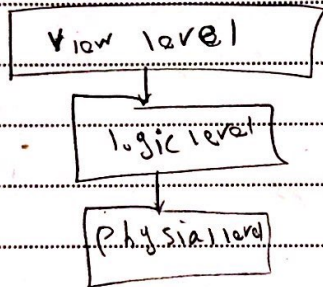 View level
logic level
physial level